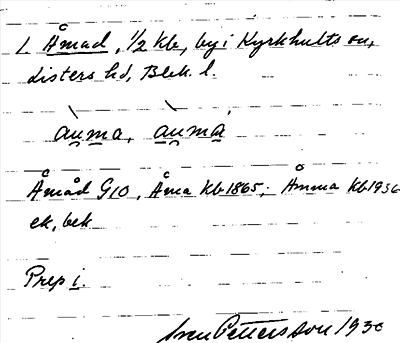 L Åmad, 1/2 kb, by i Kyrkhults sn,
Listers hd, Blek. l.
àu̯ma, àu̯ma
Åmåd G10, Åma Kb 1865; Åmma Kb 1936
ek, bek
Prep i.
Sven Pettersson 1930